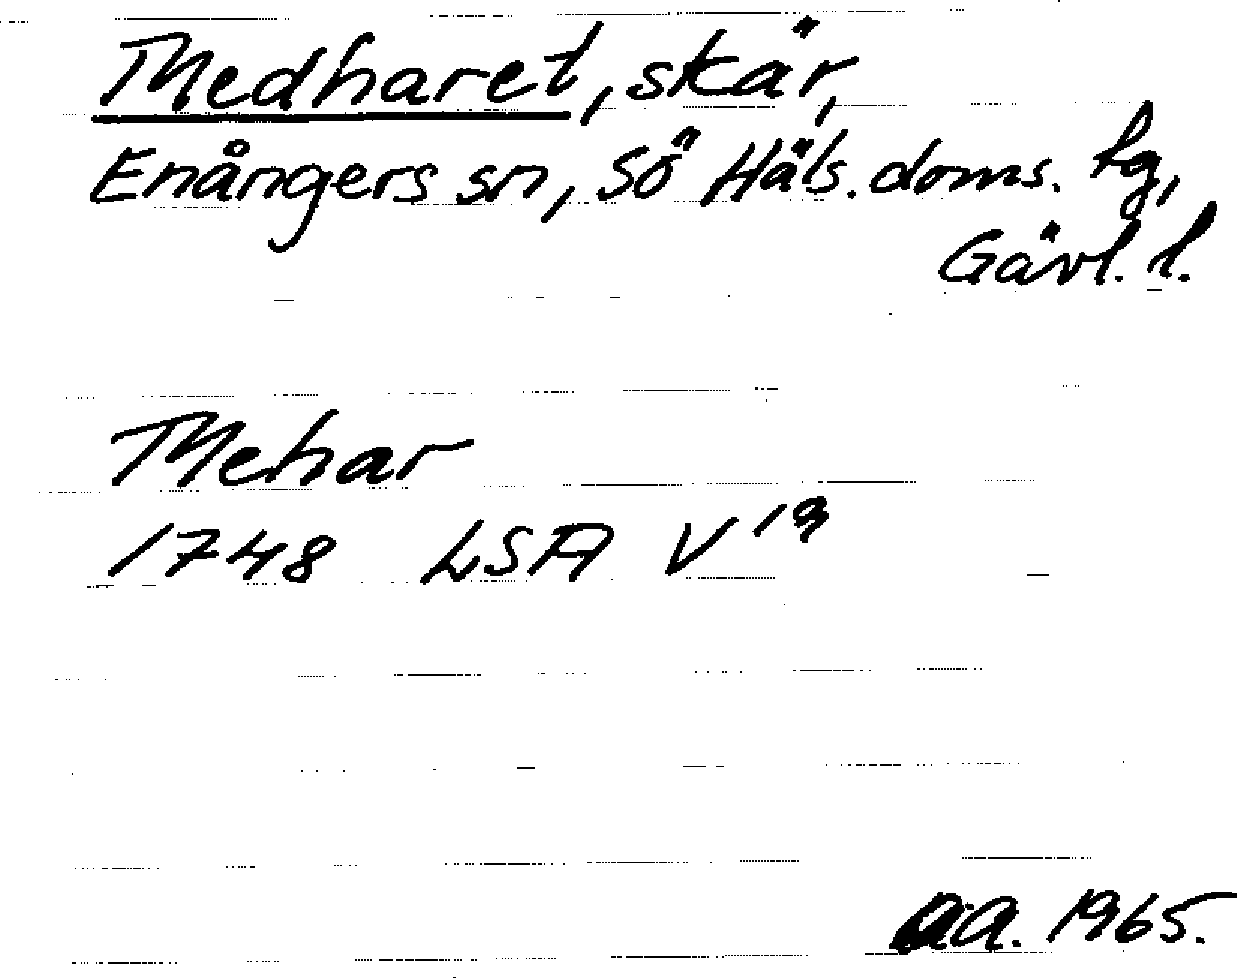 Medharet, skär,
Enångers sn, Sö Häls. doms. hg,
Gävl. l.
Mehar
1748 LSA V 19
AA. 1965.